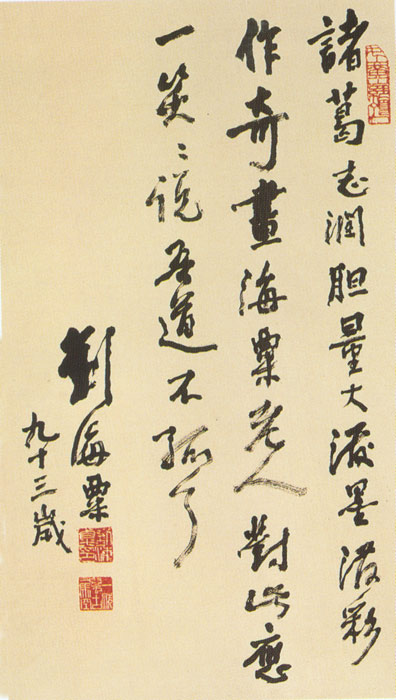 諸葛志润胆量大泼墨泼彩
作奇畫海粟老人對此應
一笑〻说吾道不孤了
劉海粟
九十三歲